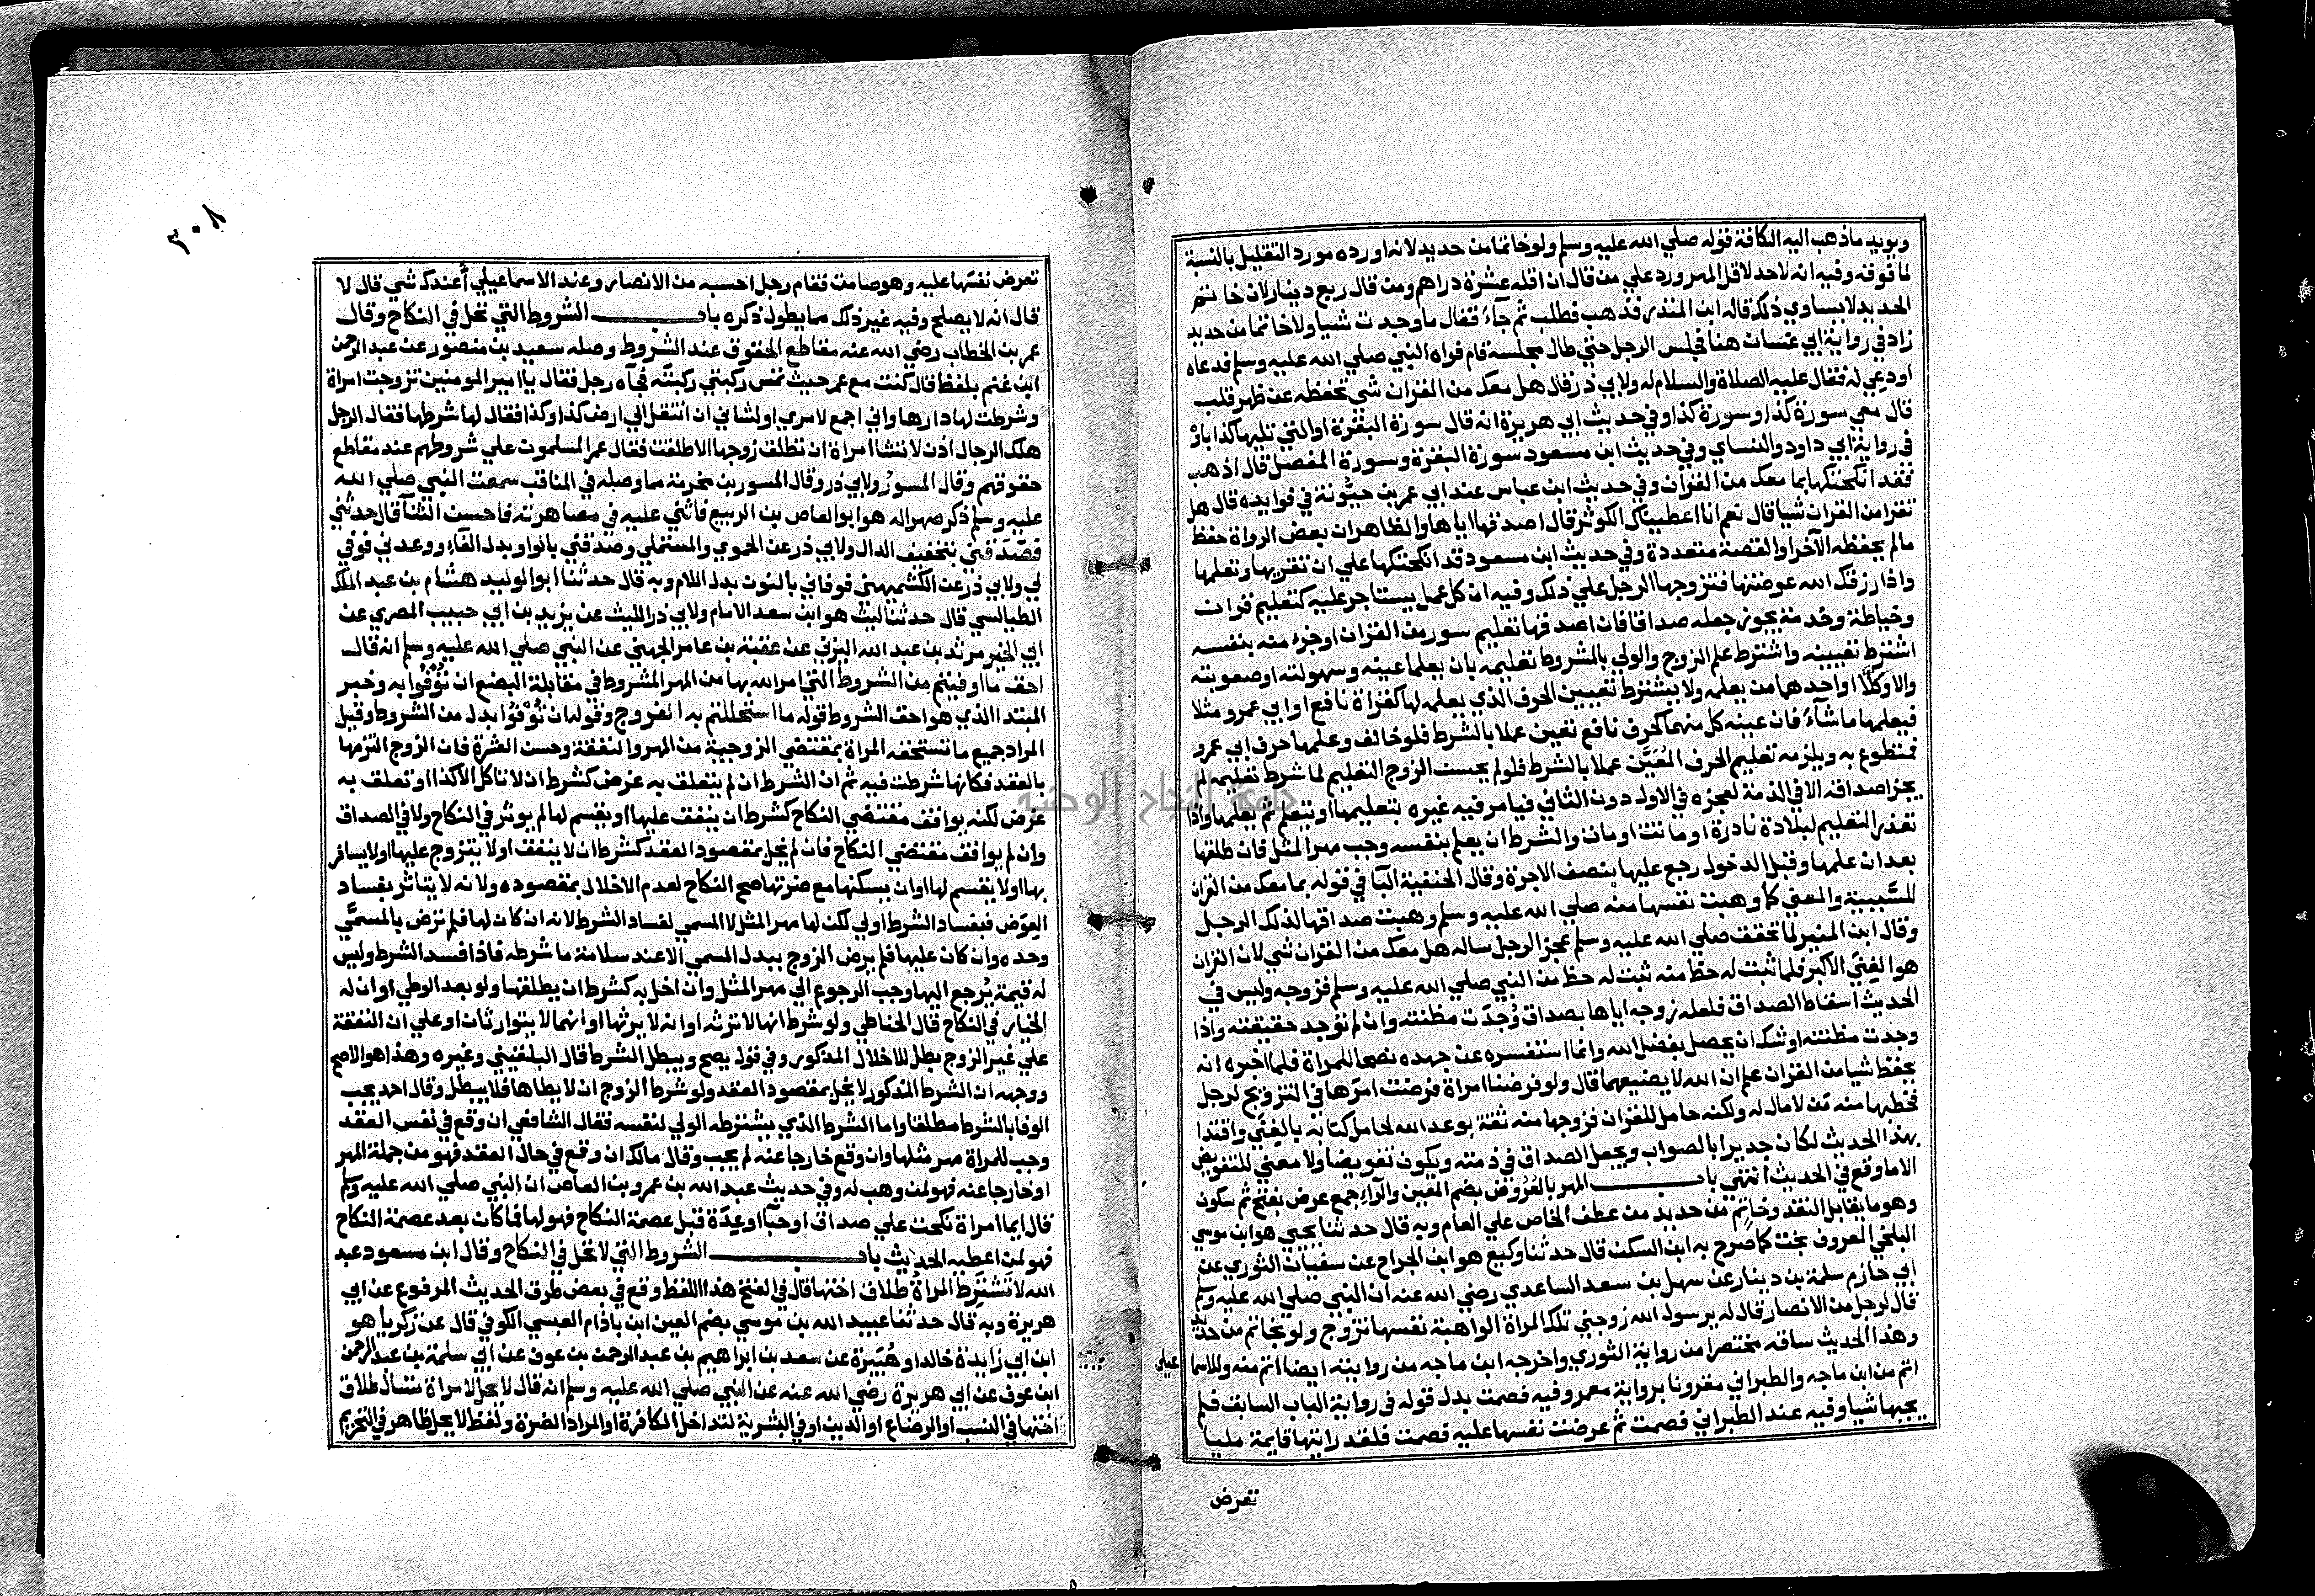 ويويد ماذهب اليه الكافة قوله صلي الله عليه وسلم ولوخاتما من حديد لانه اورده مورد التقليل بالنسبة
لما فوقه وفيه انه لاحد لاقل المهر ورد علي من قال ان اقله عشرة دراهم ومن قال ربع دينار لان خاتم
الحديد لايساوي ذلك قاله ابن المنذر فذهب فطلب ثم جآء فقال ماوجدت شيا ولاخاتما من حديد
زاد في رواية ابي غسان هنا فجلس الرجل حتي طال مجلسه قام فراه النبي صلي الله عليه وسلم فدعاه
اودعي له فقال عليه الصلاة والسلام له ولابي ذر قال هل معك من القران شي تحفظه عن ظهر قلب
قال معي سورة كذا وسورة كذا وفي حديث ابي هريرة انه قال سورة البقرة اوالتي تليها كذا باو
في رواية ابي داود والنساي وفي حديث ابن مسعود سورة البقرة وسورة المفصل قال اذهب
فقد انكحتكها بما معك من القران وفي حديث ابن عباس عند ابي عمر بن حيونة في فوايده قال هل
تقرا من القران شيا قال نعم انا اعطيناك الكوثر قال اصدقها اياها والظاهر ان بعض الرواة حفظ
مالم يحفظه الآخر اوالقصة متعددة وفي حديث ابن مسعود قد انكحتكها علي ان تقريها وتعلمها
واذا رزقك الله عوضتها فتزوجها الرجل علي ذلك وفيه ان كل عمل يستاجر عليه كتعليم قران
وخياطة وخدمة يجوز جعله صداقا فان اصدقها تعليم سور من القران اوجزء منه بنفسه
اشترط تعيينه واشترط علم الزوج والولي بالمشروط تعليمه بان يعلما عينه وسهولته اوصعوبته
والا وكلا اواحدهما من يعلمه ولايشترط تعيين الحرف الذي يعلمه لها كقراة نافع اوابي عمرو مثلا
فيعلمها ماشآء فان عينه كل منهما كحرف نافع تعين عملا بالشرط فلوخالف وعلمها حرف ابي عمرو
فمتطوع به ويلزمه تعليم الحرف المعين عملا بالشرط فلولم يحسن الزوج التعليم لما شرط تعليمه لم
يجز اصداقه الافي الذمة لعجزه في الاول دون الثاني فيامر فيه غيره بتعليمها اويتعلم ثم يعلمها واذا
تعذر التعليم لبلادة نادرة اوماتت اومات والشرط ان يعلم بنفسه وجب مهر المثل فان طلقها
بعد ان علمها وقبل الدخول رجع عليها بنصف الاجرة وقال الحنفية البآ في قوله بما معك من القران
للسببية والمعني كما وهبت نفسها منه صلي الله عليه وسلم وهبت صداقها لذلك الرجل
وقال ابن المنير لما تحقق صلي الله عليه وسلم عجز الرجل ساله هل معك من القران شي لان القران
هو الغني الاكبر فلما ثبت له حظ منه ثبت له حظ من النبي صلي الله عليه وسلم فزوجه وليس في
الحديث اسقاط الصداق فلعله زوجه اياها بصداق وجدت مظنته وان لم توجد حقيقته واذا
وجدت مظنته اوشك ان يحصل بفضل الله وانما استفسره عن جهده نصحا للمراة فلما اخبره انه
يحفظ شيا من القران علم ان الله لايضيعهما قال ولوفرضنا امراة فرضت امرها في التزويج لرجل
فخطبها منه من لامال له ولكنه حامل للقران فزوجها منه ثقة بوعد الله لحامل كتابه بالغني واقتدا
بهذا الحديث لكان جديرا بالصواب ويجعل الصداق في ذمته ويكون تفويضا ولامعني للتفويض
الا ماوقع في الحديث انتهي باب المهر بالعروض بضم العين والرآء جمع عرض بفتح ثم سكون
وهو مايقابل النقد وخاتم من حديد من عطف الخاص علي العام وبه قال حدثنا يحيي هو ابن موسي
البلخي المعروف بخت كما صرح به ابن السكن قال حدثنا وكيع هو ابن الجراح عن سفيان الثوري عن
ابي حازم سلمة بن دينار عن سهل بن سعد الساعدي رضي الله عنه ان النبي صلي الله عليه وسلم
قال لرجل من الانصار قال له يرسول الله زوجني تلك المراة الواهبة نفسها تزوج ولوبخاتم من حديد
وهذا الحديث ساقه مختصرا من رواية الثوري واخرجه ابن ماجه من روايته ايضا اتم منه وللاسما
عيلي
اتم من ابن ماجه والطبراني مقرونا برواية معمر وفيه فصمت بدل قوله في رواية الباب السابق فلم
يجبها شيا وفيه عند الطبراني فصمت ثم عرضت نفسها عليه فصمت فلقد رايتها قايمة مليا
تعرض
٣٠٨
تعرض نفسها عليه وهو صامت فقام رجل احسبه من الانصار وعند الاسماعيلي أعندك شي قال لا
قال انه لايصلح وفيه غير ذلك مما يطول ذكره باب الشروط التي تحل في النكاح وقال
عمر بن الخطاب رضي الله عنه مقاطع الحقوق عند الشروط وصله سعيد بن منصور عن عبد الرحمن
ابن غنم بلفظ قال كنت مع عمر حيث تمس ركبتي ركبته فجآه رجل فقال يا امير المومنين تزوجت امراة
وشرطت لها دارها واني اجمع لامري اولشاني ان انتقل الي ارض كذا وكذا فقال لها شرطها فقال الرجل
هلك الرجال اذن لاتشا امراة ان تطلق زوجها الا طلقت فقال عمر المسلمون علي شروطهم عند مقاطع
حقوقهم وقال المسور ولابي ذر وقال المسور بن مخرمة مما وصله في المناقب سمعت النبي صلي الله
عليه وسلم ذكر صهرا له هو ابوالعاص بن الربيع فاثني عليه في مصاهرته فاحسن الثنآ قال حدثني
فصدقني بتخفيف الدال ولابي ذر عن الحموي والمستملي وصدقني بالواو بدل الفآء ووعدني فوفي
لي ولابي ذر عن الكشميهني فوفاني بالنون بدل اللام وبه قال حدثنا ابوالوليد هشام بن عبد الملك
الطيالسي قال حدثنا ليث هو ابن سعد الامام ولابي ذر الليث عن يزيد بن ابي حبيب المصري عن
ابي الخير مرثد بن عبد الله اليزني عن عقبة بن عامر الجهني عن النبي صلي الله عليه وسلم انه قال
احق مااوفيتم من الشروط التي امر الله بها من المهر المشروط في مقابلة البضع ان توفوا به وخبر
المبتدا الذي هو احق الشروط قوله مااستحللتم به الفروج وقوله ان توفوا بدل من الشروط وقيل
المراد جميع ماتستحقه المراة بمقتضي الزوجية من المهر والنفقة وحسن العشرة فان الزوج التزمها
بالعقد فكانها شرطت فيه ثم ان الشرط ان لم يتعلق به غرض كشرط ان لاتاكل الا كذا اوتعلق به
غرض لكنه يوافق مقتضي النكاح كشرط ان ينفق عليها اويقسم لها لم يوثر في النكاح ولافي الصداق
وان لم يوافق مقتضي النكاح فان لم يخل بمقصود العقد كشرط ان لاينفق اولايتزوج عليها اولايسافر
بها اولايقسم لها اوان يسكنها مع ضرتها صح النكاح لعدم الاخلال بمقصوده ولانه لايتاثر بفساد
العوض فبفساد الشرط اولي لكن لها مهر المثل لاالمسمي لفساد الشرط لانه ان كان لها فلم ترض بالمسمي
وحده وان كان عليها فلم يرض الزوج ببدل المسمي الا عند سلامة ماشرطه فاذا فسد الشرط وليس
له قيمة يرجع اليها وجب الرجوع الي مهر المثل وان اخل به كشرط ان يطلقها ولوبعد الوطي اوان له
الخيار في النكاح قال الحناطي ولوشرط انها لاترثه اوانه لايرثها اوانهما لايتوارثان اوعلي ان النفقة
علي غير الزوج بطل للاخلال المذكور وفي قول يصح ويبطل الشرط قال البلقيني وغيره وهذا هو الاصح
ووجهه ان الشرط المذكور لايخل بمقصود العقد ولوشرط الزوج ان لايطاها فلايبطل وقال احمد يجب
الوفا بالشرط مطلقا واما الشرط الذي يشترطه الولي لنفسه فقال الشافعي ان وقع في نفس العقد
وجب للمراة مهر مثلها وان وقع خارجا عنه لم يجب وقال مالك ان وقع في حال العقد فهو من جملة المهر
اوخارجا عنه فهو لمن وهب له وفي حديث عبد الله بن عمرو بن العاص ان النبي صلي الله عليه وسلم
قال ايما امراة نكحت علي صداق اوحبآ اوعدة قبل عصمة النكاح فهو لها فما كان بعد عصمة النكاح
فهو لمن اعطيه الحديث باب الشروط التي لاتحل في النكاح وقال ابن مسعود عبد
الله لاتشترط المراة طلاق اختها قال في الفتح هذا اللفظ وقع في بعض طرق الحديث المرفوع عن ابي
هريرة وبه قال حدثنا عبيد الله بن موسي بضم العين ابن باذام العبسي الكوفي قال عن زكريا هو
ابن ابي زايدة خالد اوهبيرة عن سعد بن ابراهيم بن عبد الرحمن بن عوف عن ابي سلمة بن عبد الرحمن
ابن عوف عن ابي هريرة رضي الله عنه عن النبي صلي الله عليه وسلم انه قال لايحل لامراة تسال طلاق
اختها في النسب اوالرضاع اوالدين اوفي البشرية لتدخل الكافرة اوالمراد الضرة ولفظ لايحل ظاهر في التحريم
جامعة النجاح الوطنية